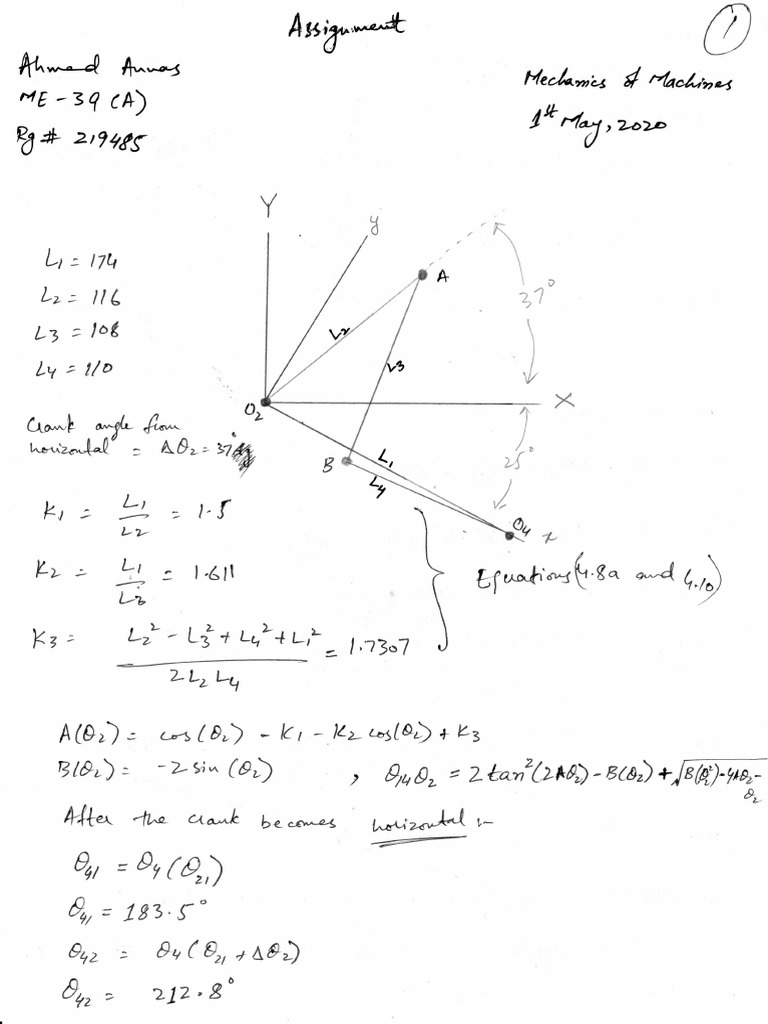 Assignment
1
Ahmed Annas
ME-39 (A)
Rg# 219485
Mechanics of Machines
1st May, 2020
Y
y
A
37°
L1 = 174
L2 = 116
L3 = 108
L4 = 110
L2
L3
O2
X
Crank angle from
horizontal = ΔΘ2 = 37°
B
L1
L4
25°
O4
x
K1 = L1/L2 = 1.5
K2 = L1/L3 = 1.611
K3 = (L2² - L3² + L4² + L1²)/(2L2L4) = 1.7307
Equations (4.8a and 4.10)
A(Θ2) = cos(Θ2) - K1 - K2 cos(Θ2) + K3
B(Θ2) = -2 sin(Θ2) , Θ14Θ2 = 2tan²(2AΘ2) - B(Θ2) + √B(Θ2²) - 4AΘ2 - Θ2
After the crank becomes horizontal :-
Θ41 = Θ4(Θ21)
Θ41 = 183.5°
Θ42 = Θ4(Θ21 + ΔΘ2)
Θ42 = 212.8°